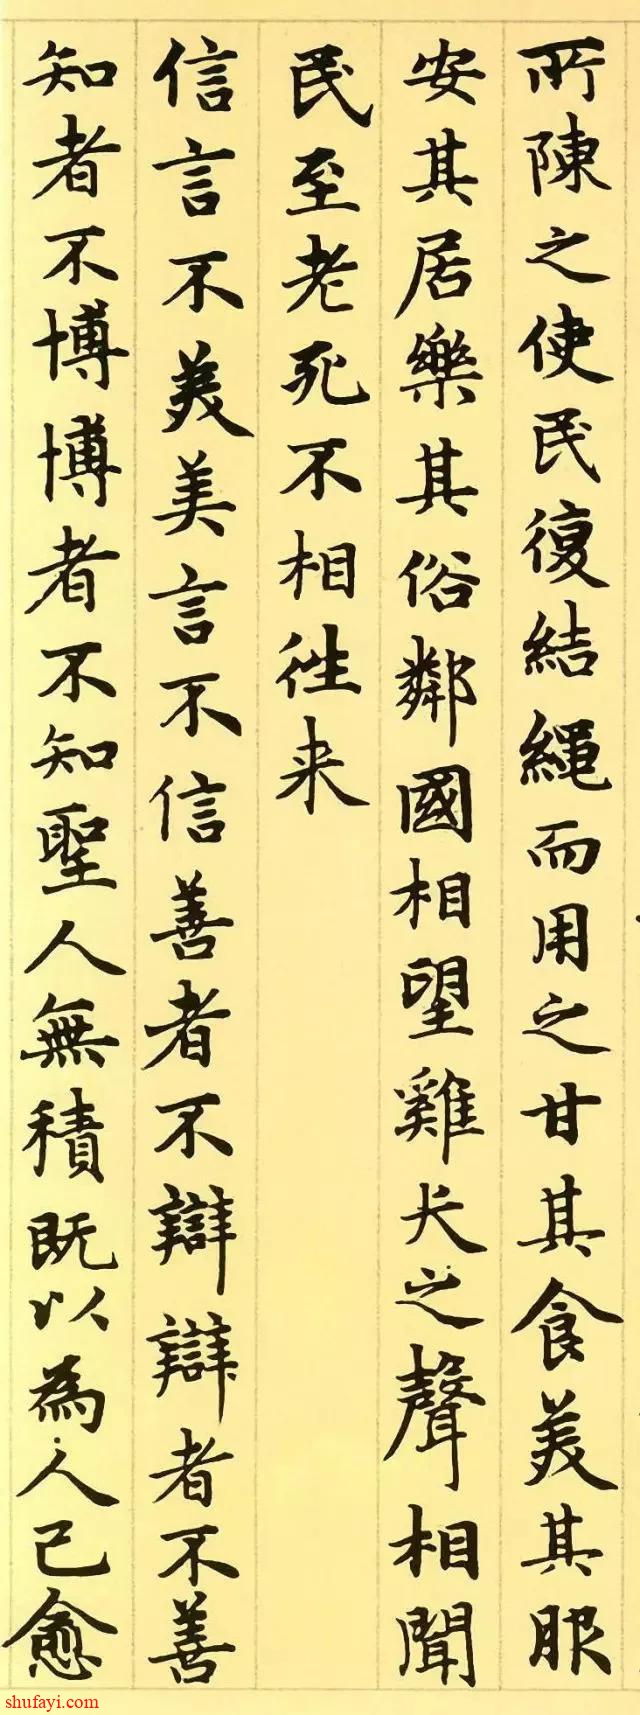 所陳之使民復結繩而用之甘其食美其服
安其居樂其俗鄰國相望雞犬之聲相聞
民至老死不相往来
信言不美美言不信善者不辯辯者不善
知者不博博者不知聖人無積既以為人己愈
shufayi.com